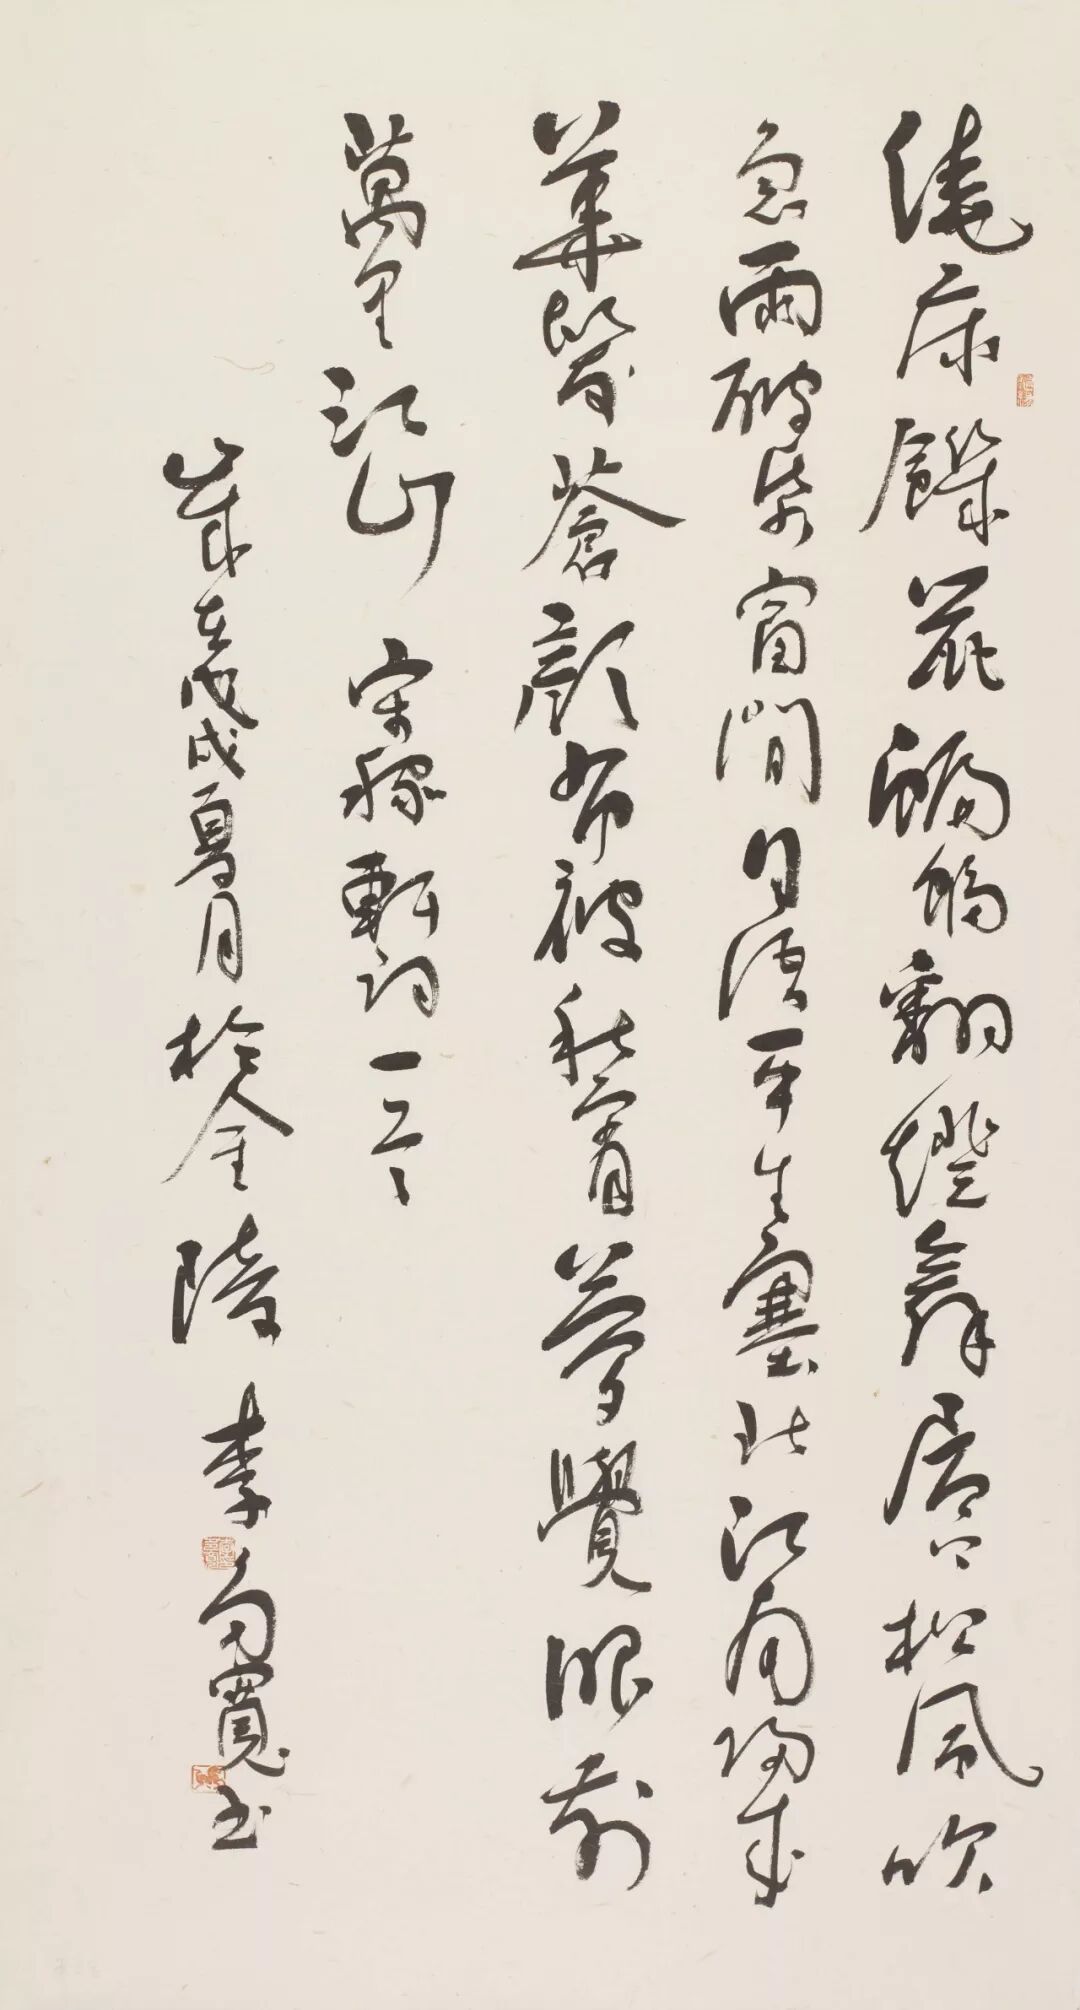 繞床饑鼠蝙蝠翻燈舞屋上松風吹
急雨破紙窗間自語平生塞北江南歸來
華髮蒼顏布被秋宵夢覺眼前
萬里江山 宋稼軒詞一首
歲在戊戌夏月於金陵 李寬书